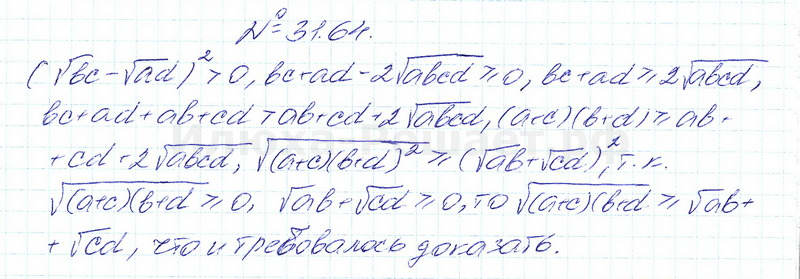 № 31.64.
(√bc - √ad)² > 0, bc + ad - 2√abcd ≥ 0, bc + ad ≥ 2√abcd,
bc + ad + ab + cd > ab + cd + 2√abcd, (a+c)(b+d) ≥ ab +
+ cd + 2√abcd, √(a+c)(b+d)² ≥ (√ab + √cd)², т.к.
√(a+c)(b+d) ≥ 0, √ab + √cd ≥ 0, то √(a+c)(b+d) ≥ √ab +
+ √cd, что и требовалось доказать.